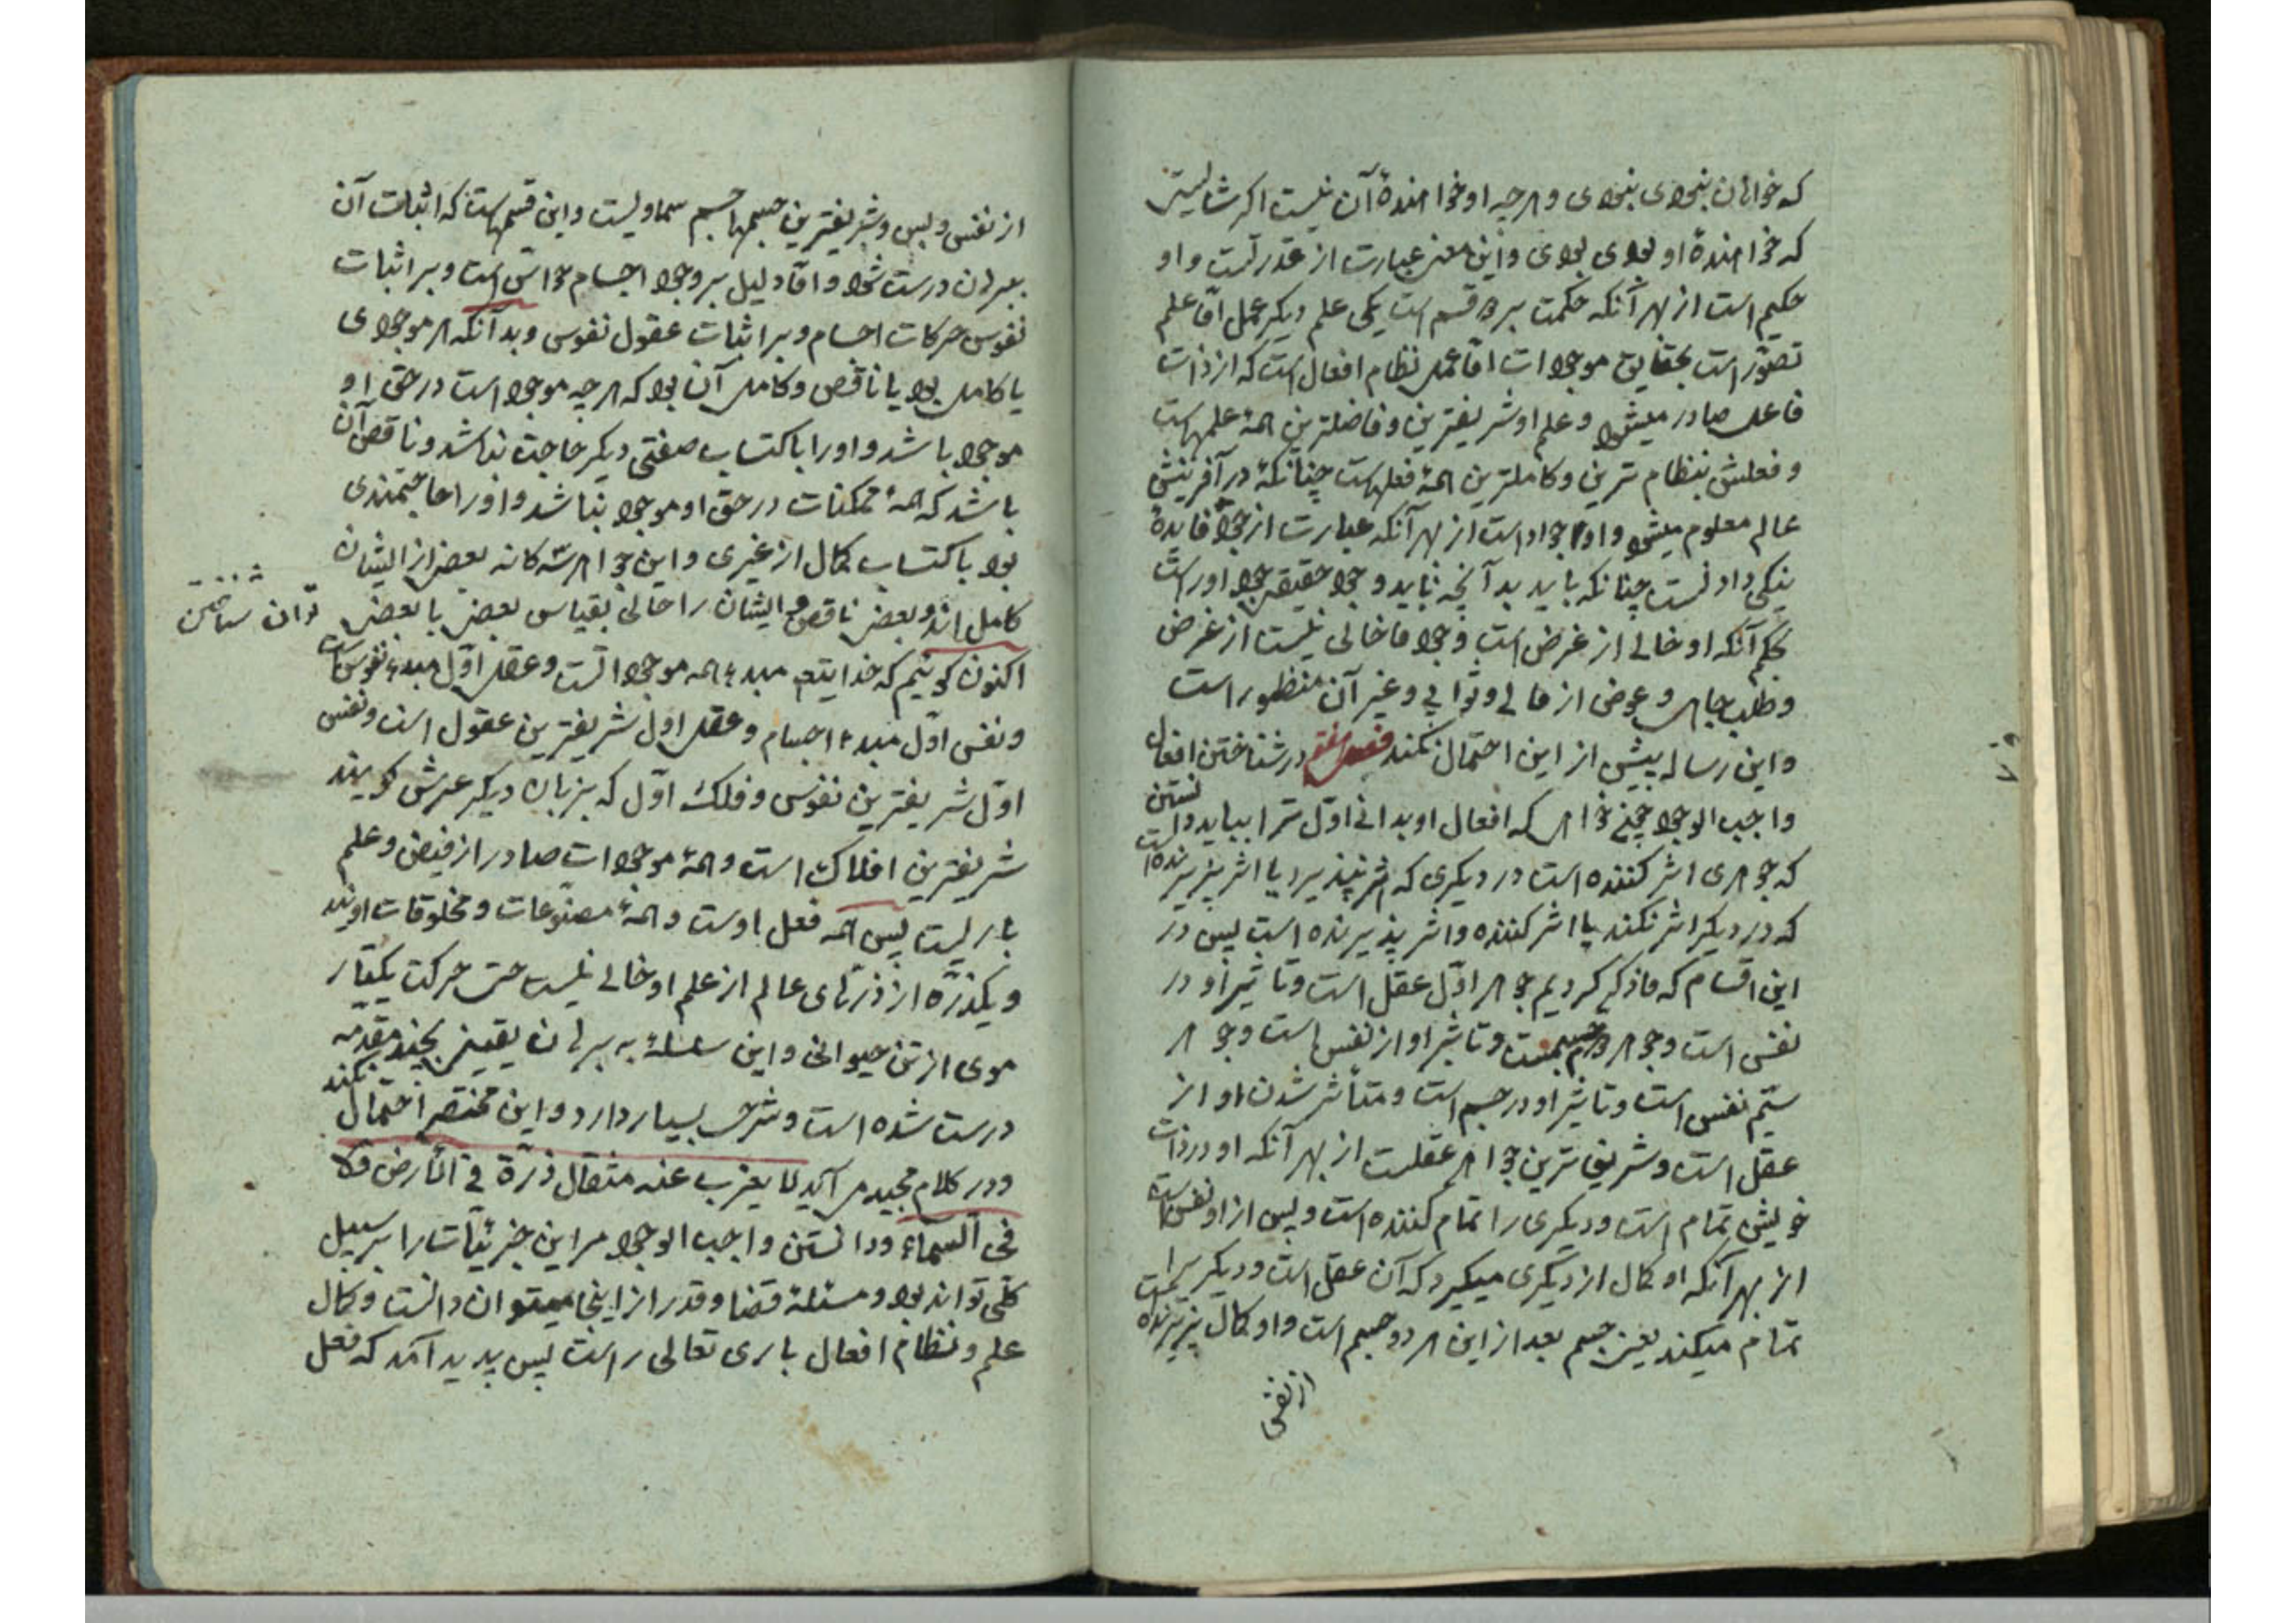 که خواهان بنبودی بنبودی و هرچه او خواهندهٔ آن نیست اگر شایستی
که خواهندهٔ او بودی بودی و این معنی عبارت از قدرتست و او
حکیم است از بهر آنکه حکمت بر دو قسم است یکی علم دیگر عمل امّا علم
تصوّر است بحقایق موجودات امّا عمل نظام افعال است که از ذات
فاعل صادر میشود و علم او شریفترین و فاضلترین همهٔ علمهاست
و فعلش بنظام ترین و کاملترین همهٔ فعلهاست چنانکه در آفرینش
عالم معلوم میشود و او جواد است از بهر آنکه عبارت از جود فایدهٔ
نیکی دادنست چنانکه باید بدآنچه باید و جود حقیقی جود اوراست
بحکم آنکه او خالی از غرض است و جود ما خالی نیست از غرض
و طلب جاهی و عوضی از مالی و ثوابی و غیر آن منظور است
و این رساله بیش از این احتمال نکند فصل هفتم در شناختن افعال
واجب الوجود چون خواهی که افعال او بدانی اوّل ترا بباید دانستن
که جوهری اثر کننده است در دیگری که اثر نپذیرد یا اثر پذیرنده است
که در دیگر اثر نکند یا اثر کننده و اثر پذیرنده است پس در
این اقسام که ما ذکر کردیم جوهر اوّل عقل است و تاثیر او در
نفس است و جوهر دوم جسمست و تاثیر او از نفس است و جوهر
سیّم نفس است و تاثیر او در جسم است و متأثر شدن او از
عقل است و شریف ترین جواهر عقلست از بهر آنکه او در ذات
خویش تمام است و دیگری را تمام کننده است و پس از او نفس است
از بهر آنکه او کمال از دیگری میگیرد که آن عقل است و دیگر یرا
تمام میکند یعنی جسم بعد از این هر دو جسم است و او کمال پذیرنده است
از نفس
از نفس و بس و شریفترین جسمها جسم سماویست و این قسمهاست که اثبات آن
ببرهان درست شود و امّا دلیل بر وجود اجسام حواسّ است و بر اثبات
نفوس حرکات اجسام و بر اثبات عقول نفوس و بدآنکه هر موجودی
یا کامل بود یا ناقص و کامل آن بود که هرچه موجود است در حقّ او
موجود باشد و او را باکتساب صفتی دیگر حاجت نباشد و ناقص آن
باشد که همهٔ ممکنات در حقّ او موجود نباشد و او را حاجتمندی
بود باکتساب کمال از غیری و این جواهر سه‌کانه بعضی از ایشان
کامل اند و بعضی ناقص و ایشان را حالی بقیاس بعضی با بعضی توان شناختن
اکنون گوییم که خدایتع مبدء همه موجوداتست و عقل اوّل مبدء نفوس است
و نفس اوّل مبدء اجسام و عقل اول شریفترین عقول است و نفس
اوّل شریفترین نفوس و فلک اوّل که بزبان دیگر عرش گویند
شریفترین افلاک است و همهٔ موجودات صادر از فیض و علم
باریست پس همه فعل اوست و همهٔ مصنوعات و مخلوقات اویند
و یکذرّه از ذرّهای عالم از علم او خالی نیست حتی حرکت یکتار
موی از تن حیوانی و این سلسله به برهان یقینی بچند مقدّمه
درست شده است و شرح بسیار دارد و این مختصر احتمال نکند
و در کلام مجید می آید لا یعزب عنه مثقال ذرّة فی الأرض ولا
فی السماء و دانستن واجب الوجود مر این جزئیّات را بر سبیل
کلّی تواند بود و مسئلهٔ قضا و قدر از اینجا میتوان دانست و کمال
علم و نظام افعال باری تعالی راست پس پدید آمد که فعل